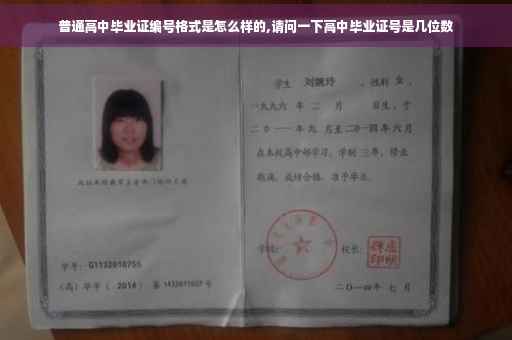 普通高中毕业证编号格式是怎么样的,请问一下高中毕业证号是几位数
学生 刘婉玲 ,性别 女 ,
一九九六 年 二 月 日生,于
二〇一一 年 九 月至 二〇一四 年 六 月
在本校高中部学习,学制 三 年,修业
期满,成绩合格,准予毕业。
学校: 校长:
学号: G1132010755
(高)毕字( 2014 )第 1432011007 号
二〇一四年 七 月